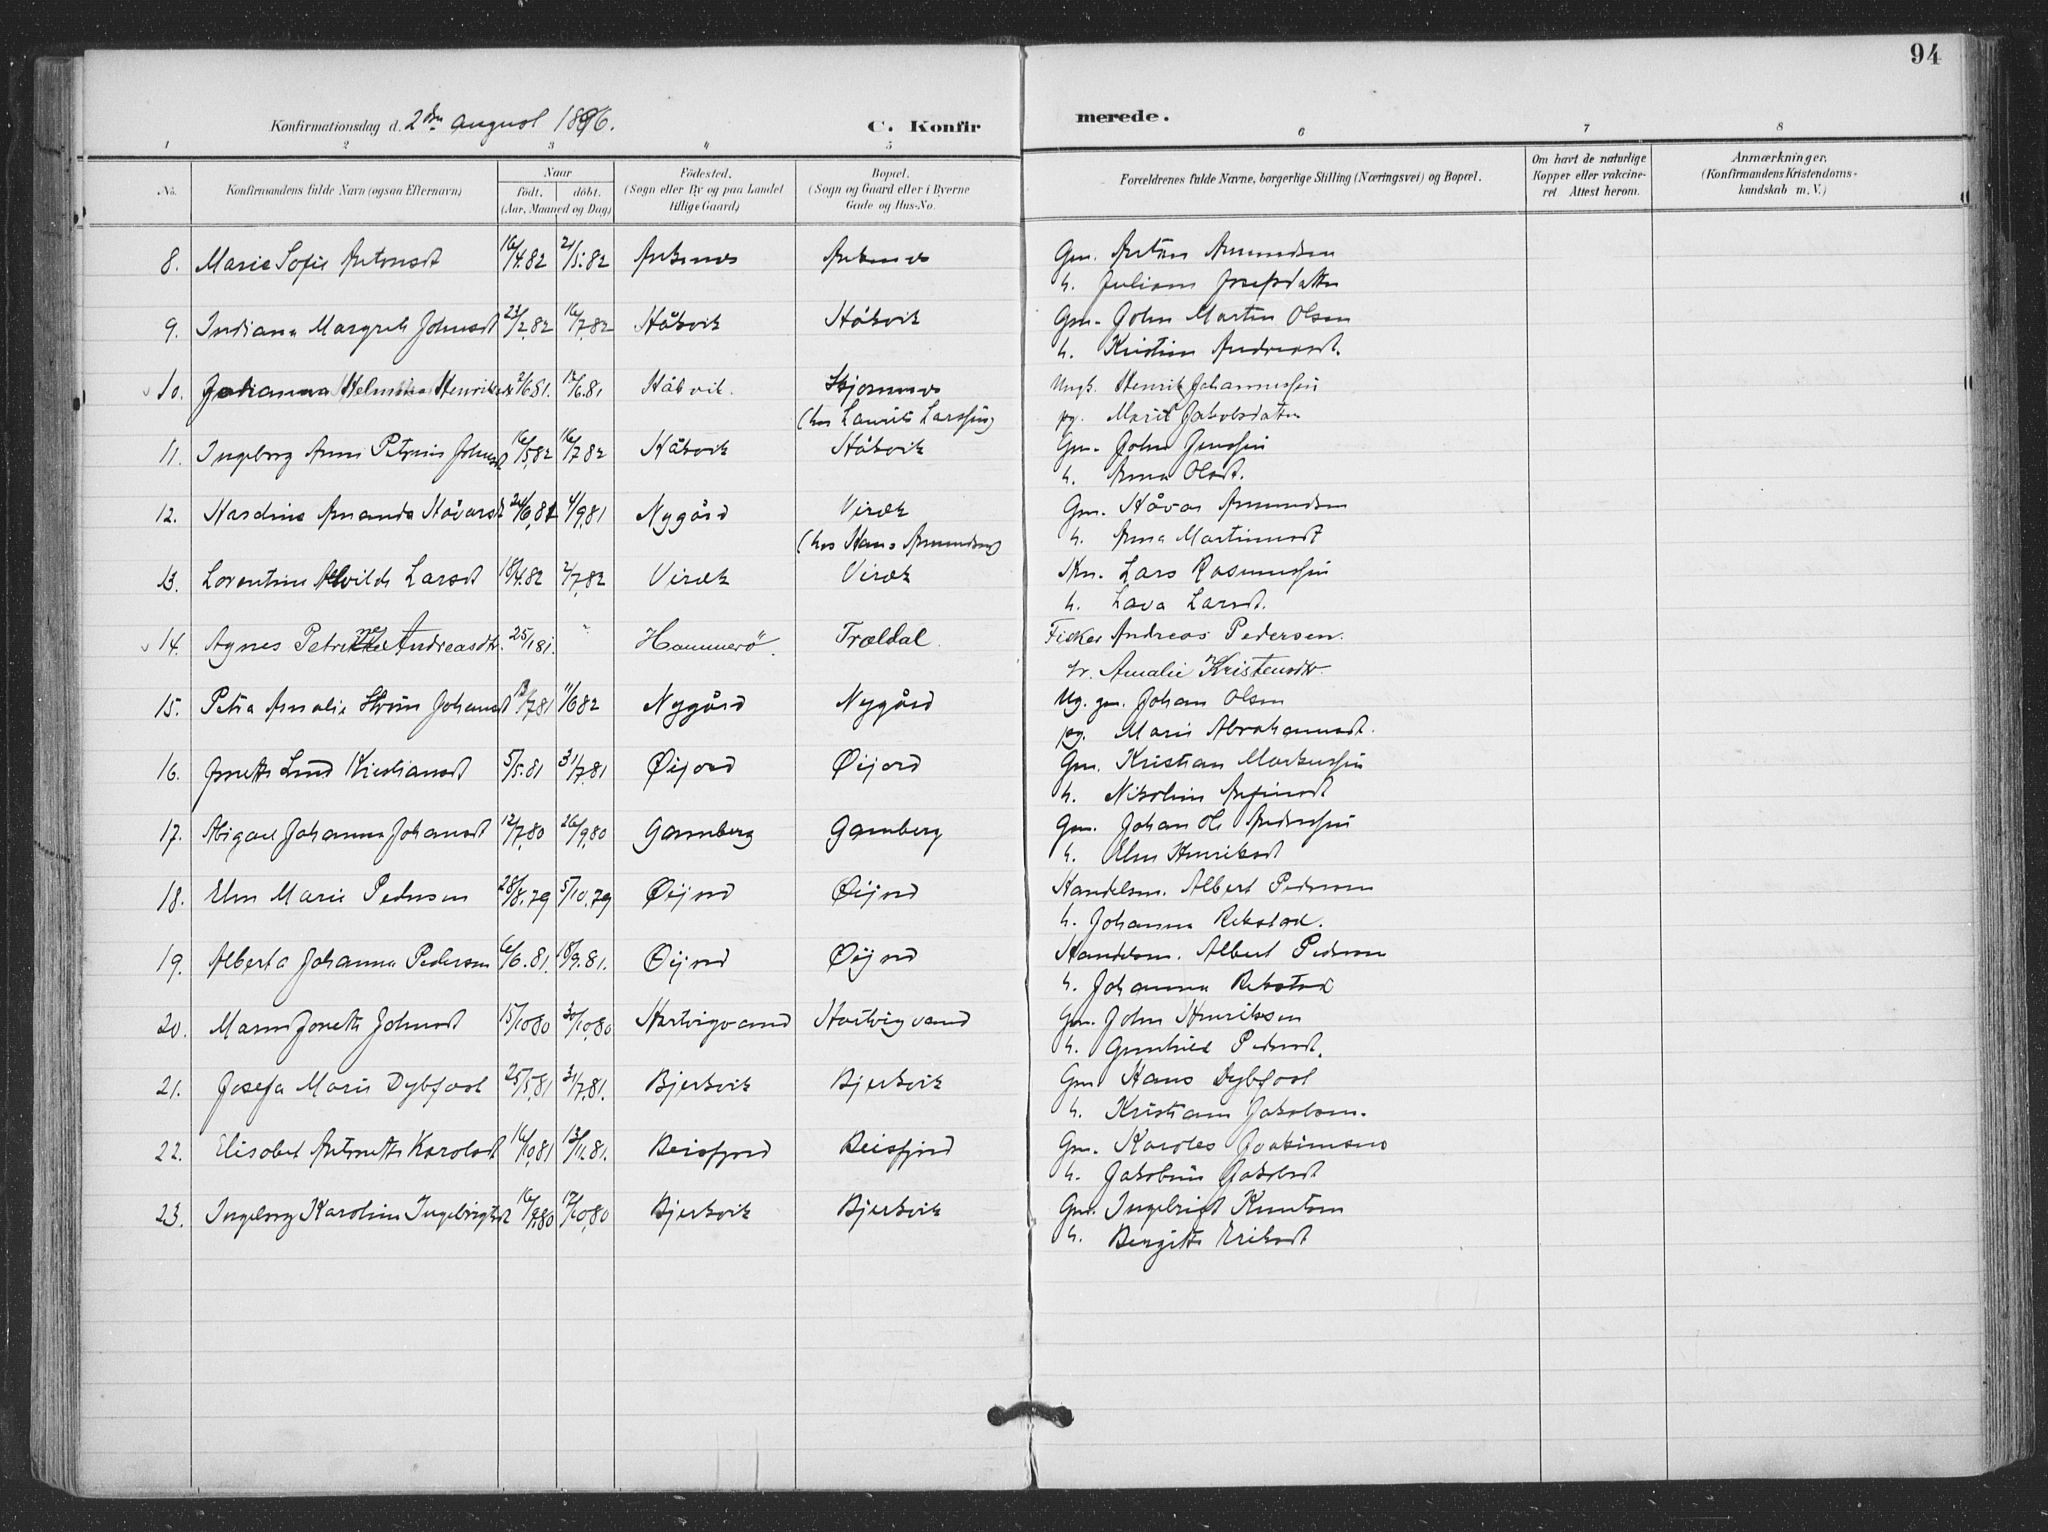 94
Konfirmationsdag d. 2den august 1896.
C. Konfirmerede.
1 2 3 4 5 6 7 8
No.
Konfirmandens fulde Navn (ogsaa Efternavn)
Naar
födt. döbt.
(Aar, Maaned og Dag)
Födested.
(Sogn eller By og paa Landet
tillige Gaard)
Bopæl.
(Sogn og Gaard eller i Byerne
Gade og Hus-No.
Forældrenes fulde Navne, borgerlige Stilling (Næringsvei) og Bopæl.
Om havt de naturlige
Kopper eller vakcine-
ret Attest herom.
Anmærkninger.
(Konfirmandens Kristendoms-
kundskab m. V.)
8. Marie Sofie Antonsdt 16/4.82 21/5.82 Ankenes Ankenes Gm. Anton Amundsen
h. Juliane Josefsdatter
9. Indiana Margreth Johnsdt 23/2.82 16/7.82 Håkvik Håkvik Gm. John Martin Olsen
h. Kristine Andreasdt.
10. Johanna Henriks 2/6 81. 12/6.81 Håkvik. Skjomnes Ungk. Henrik Johannessen
(hos Laurits Larssen) pg. Marie Jakobsdatter
11. Ingeborg Anne Petrine Johnsdt 16/5.82 16/7 82 Håkvik Håkvik Gm. John Jenssen
h. Anna Olsdt.
12. Hardine Amanda Håvarsdt 24/6.81 4/9.81 Nygård Virak Gm. Håvar Amundsen
(hos Hans Amundsen) h. Anna Martinusdt
13. Lorentine Alvilde Larsdt 18/4.82 2/7.82 Virak Virak Lars Rasmussen
h. Lava Larsdt.
14. Agnes Petrine Andreasdtr. 25/1 81. " Hammerö. Træeldal. Fisker Andreas Pedersen.
Amalie Kristensdtr.
15. Petra Amalie Strøm Johansdt /7 81 11/6 82 Nygård Nygård Ug. gm. Johan Olsen
pg. Marie Abrahamsdt.
16. Anette Lind Kristiansdt 5/5.81 31/7.81 Øijord Øijord Gm. Kristian Markussen
h. Nikoline Arfinsdt
17. Abigael Johanna Johansdt 12/7.80 26/9.80 Gamberg Gamberg Gm. Johan Ol Anderssen
h. Elen Henriksdt
18. Elen Marie Pedersen 28/8.79 5/10.79 Øijord Øijord Handelsm. Albert Pedersen
h. Johanna Rekstad.
19. Alberta Johanna Pedersen 6/6.81. 18/9.81. Øijord Øijord Handelsm. Albert Pedersen
h. Johanna Rekstad
20. Maren Jonette Johnsdt 15/10 80 30/10.80 Hartvigvand Hartvigvand Gm. John Henriksen
h. Gunhild Pedersdt.
21. Josefa Marie Dybfest 25/5.81 31/7.81. Bjerkvik Bjerkvik Gm. Hans Dybfest
h. Kristiane Jakobsen.
22. Elisabet Antonette Karolsdt 16/10.81 13/11.81. Beisfjord Beisfjord Gm. Karoles Joakimsen
h. Jakobine Jakobsdt
23. Ingeborg Karoline Ingebrigtsdt 16/9.80 17/10.80 Bjerkvik Bjerkvik Gm. Ingebrigt Knutsen
h. Bergitte Eriksdt